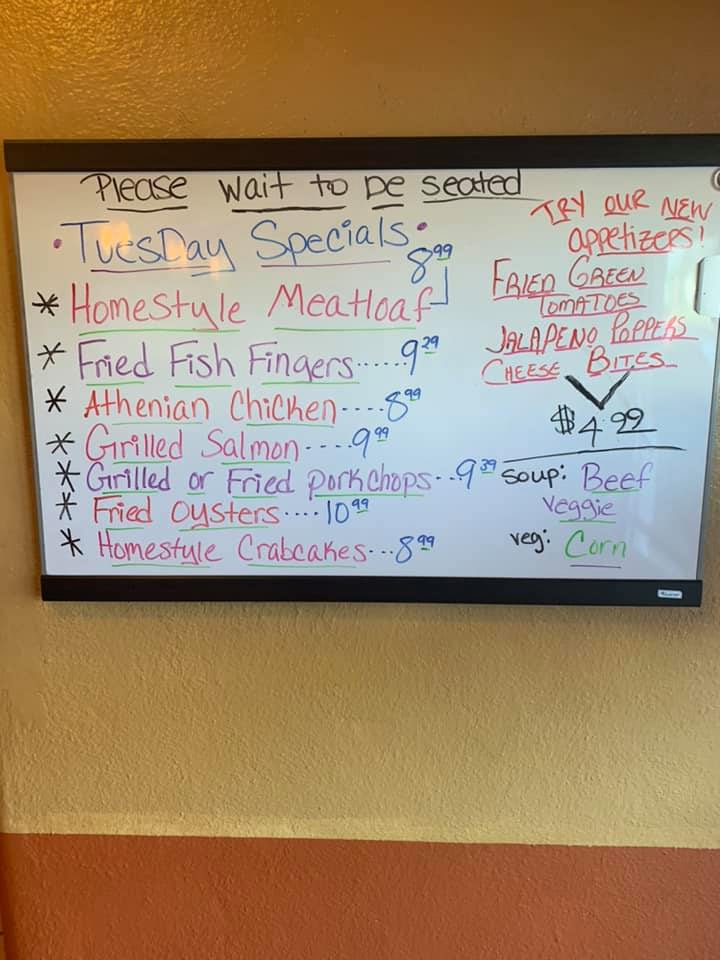 Please wait to be seated
• Tuesday Specials •
* Homestyle Meatloaf 8.99
* Fried Fish Fingers......9.29
* Athenian Chicken....8.99
* Grilled Salmon....9.99
* Grilled or Fried Porkchops...9.39
* Fried Oysters....10.99
* Homestyle Crabcakes...8.99
TRY OUR NEW
appetizers!
FRIED GREEN
TOMATOES
JALAPENO POPPERS
CHEESE BITES
$4.99
soup: Beef
Veggie
veg: Corn